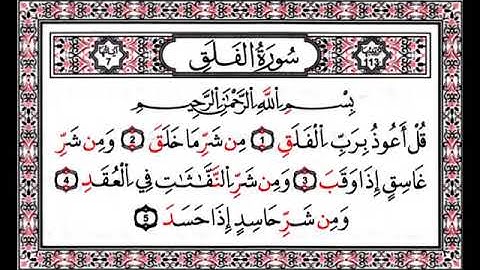 سُورَةُ الْفَلَقِ
113
7
بِسْمِ اللَّهِ الرَّحْمَٰنِ الرَّحِيمِ
قُلْ أَعُوذُ بِرَبِّ الْفَلَقِ 1 مِن شَرِّ مَا خَلَقَ 2 وَمِن شَرِّ
غَاسِقٍ إِذَا وَقَبَ 3 وَمِن شَرِّ النَّفَّاثَاتِ فِي الْعُقَدِ 4
وَمِن شَرِّ حَاسِدٍ إِذَا حَسَدَ 5